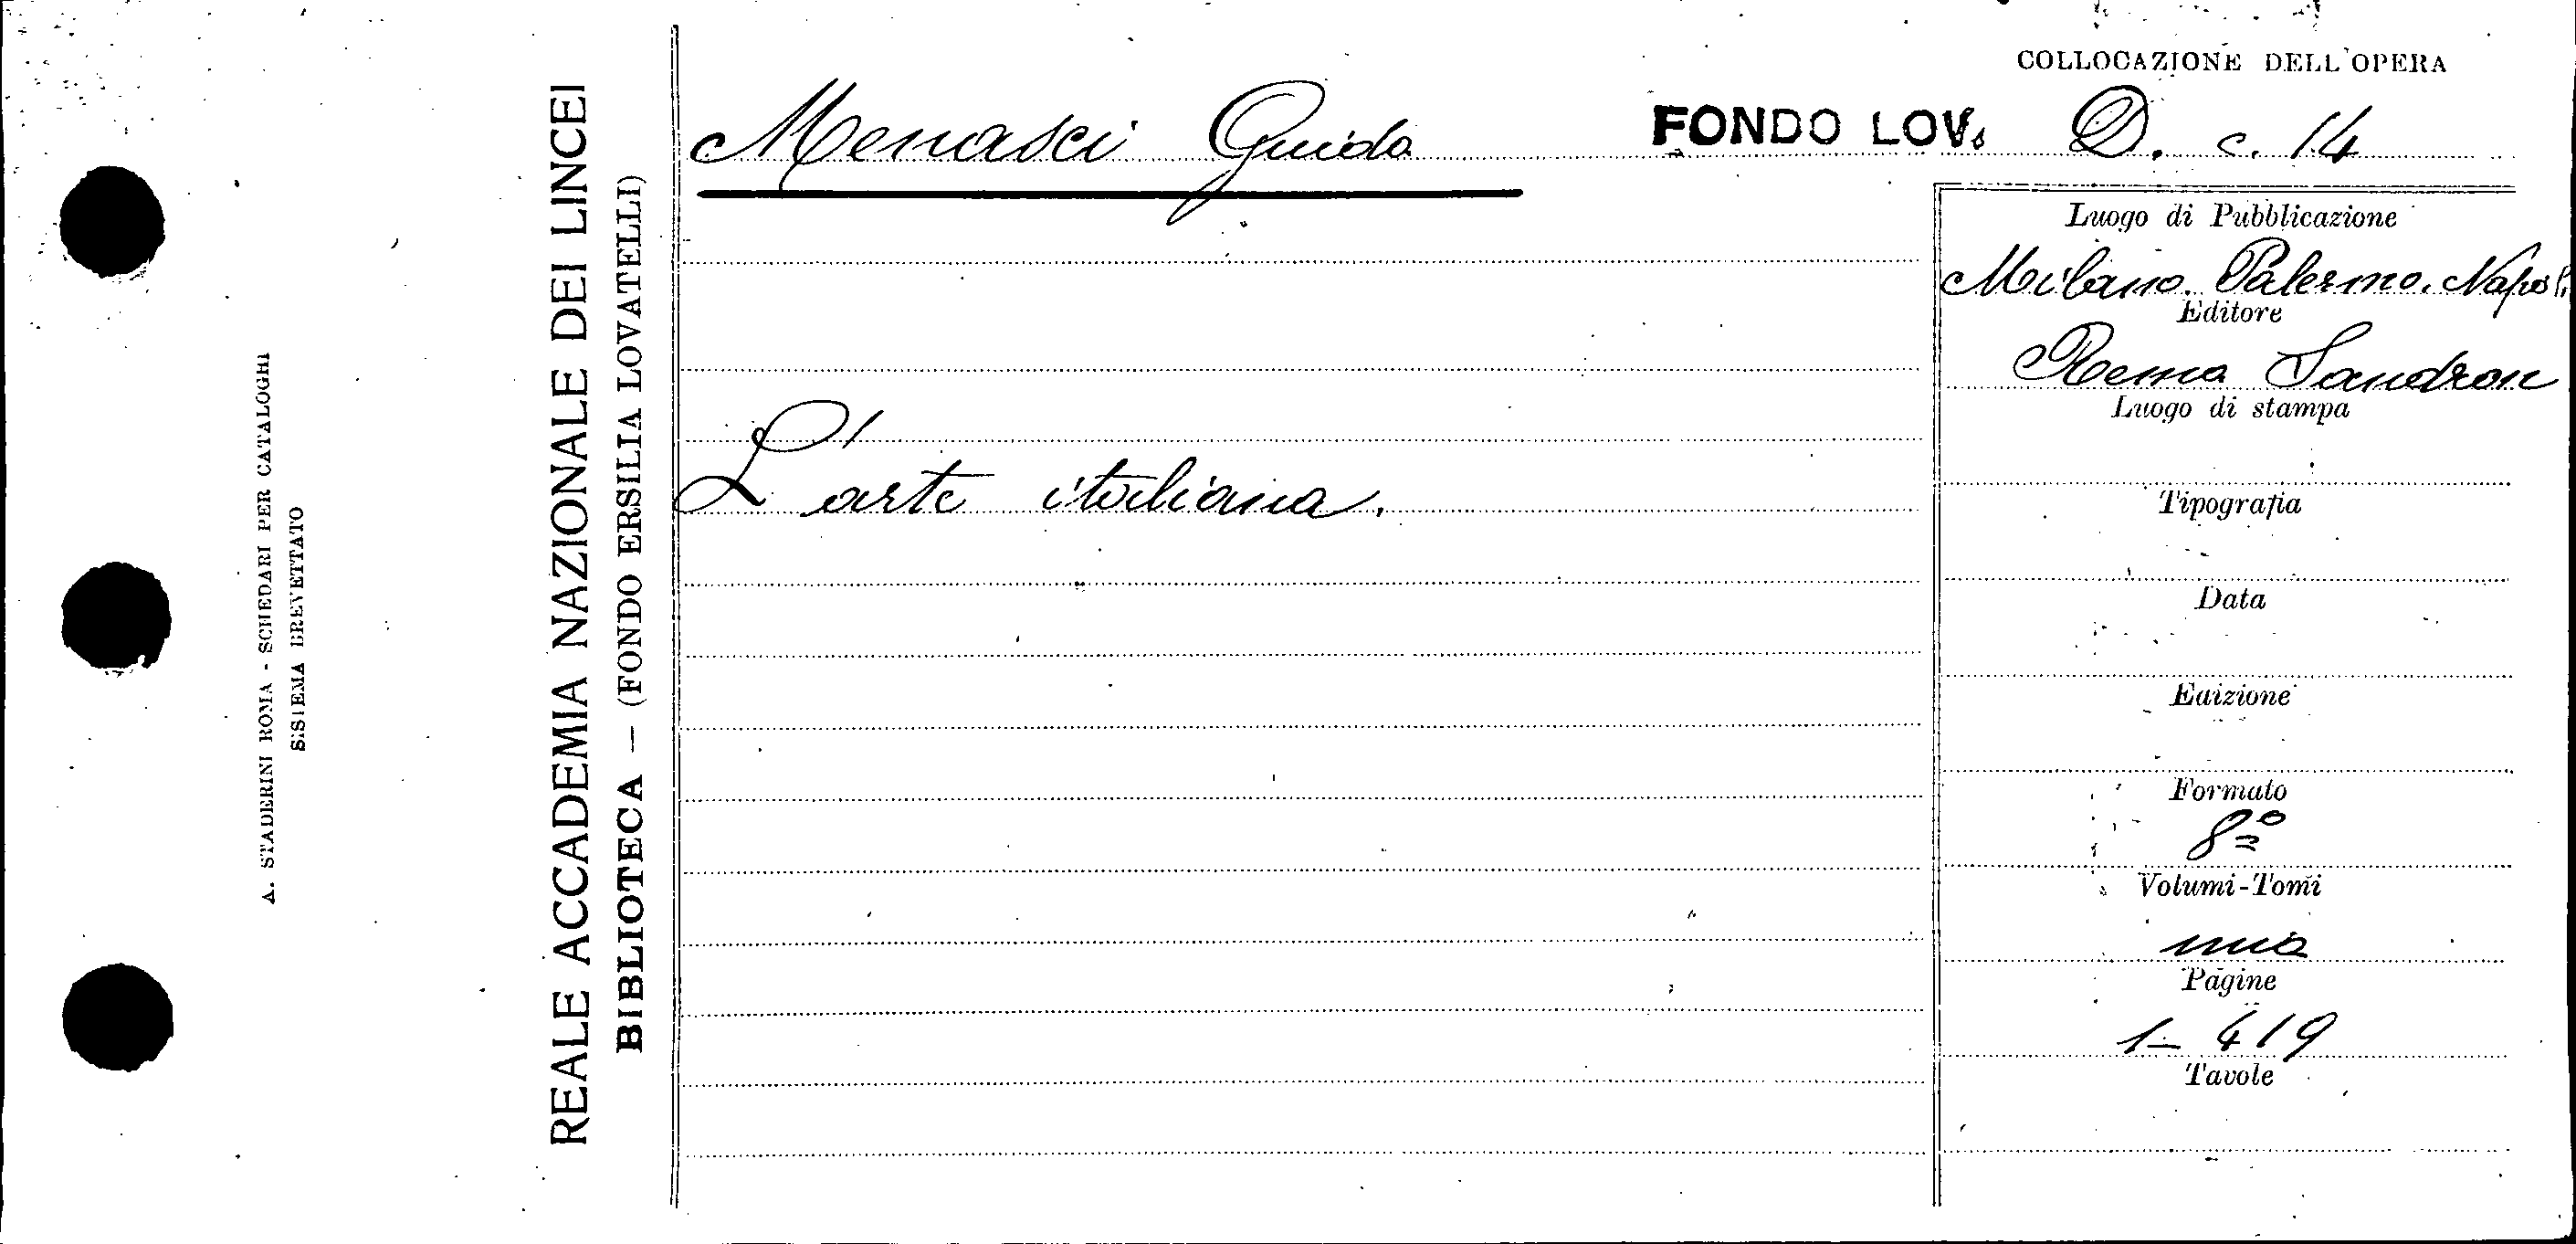 A. STADERINI ROMA - SCHEDARI PER CATALOGHI
SISTEMA BREVETTATO
REALE ACCADEMIA NAZIONALE DEI LINCEI
BIBLIOTECA — (FONDO ERSILIA LOVATELLI)
COLLOCAZIONE DELL'OPERA
Menasci Guido
FONDO LOV. D. c. 14
L'arte italiana.
Luogo di Pubblicazione
Milano. Palermo. Napoli
Editore
Remo Sandron
Luogo di stampa
Tipografia
Data
Edizione
Formato
8º
Volumi-Tomi
uno
Pagine
1- 419
Tavole